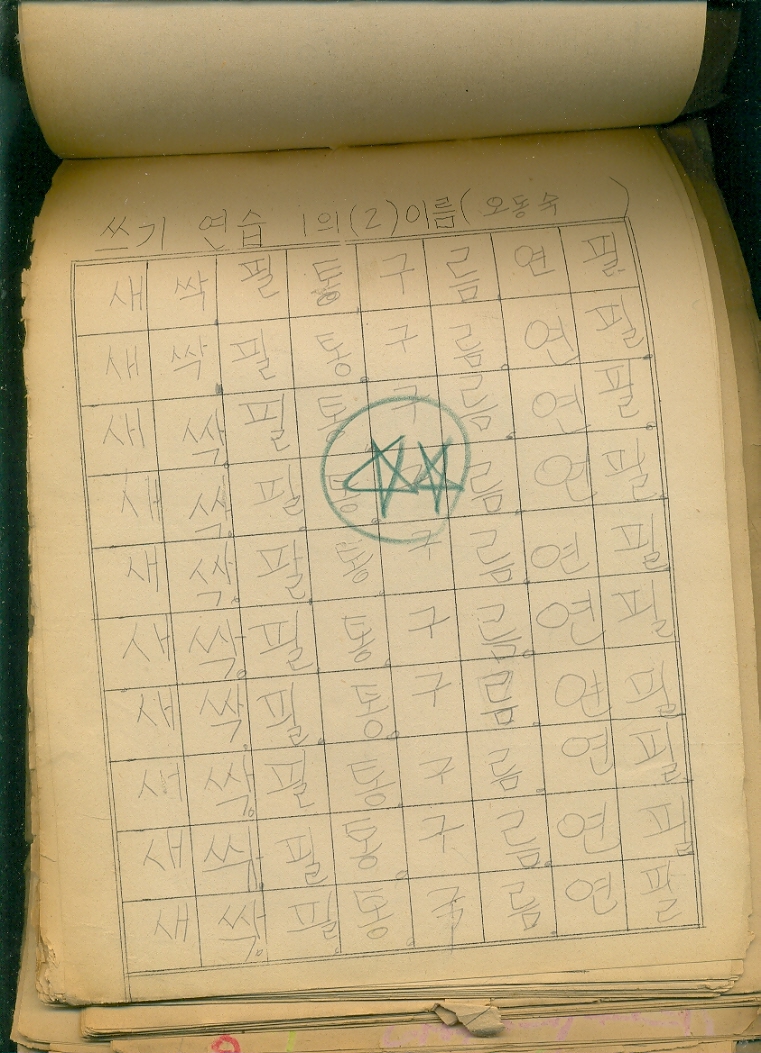 쓰기 연습 1의(2)이름(오동숙)
새 싹 필 통 구 름 연 필
새 싹 필 통 구 름 연 필
새 싹 필 통 구 름 연 필
새 싹 필 통 구 름 연 필
새 싹 필 통 구 름 연 필
새 싹 필 통 구 름 연 필
새 싹 필 통 구 름 연 필
새 싹 필 통 구 름 연 필
새 싹 필 통 구 름 연 필
새 싹 필 통 구 름 연 필